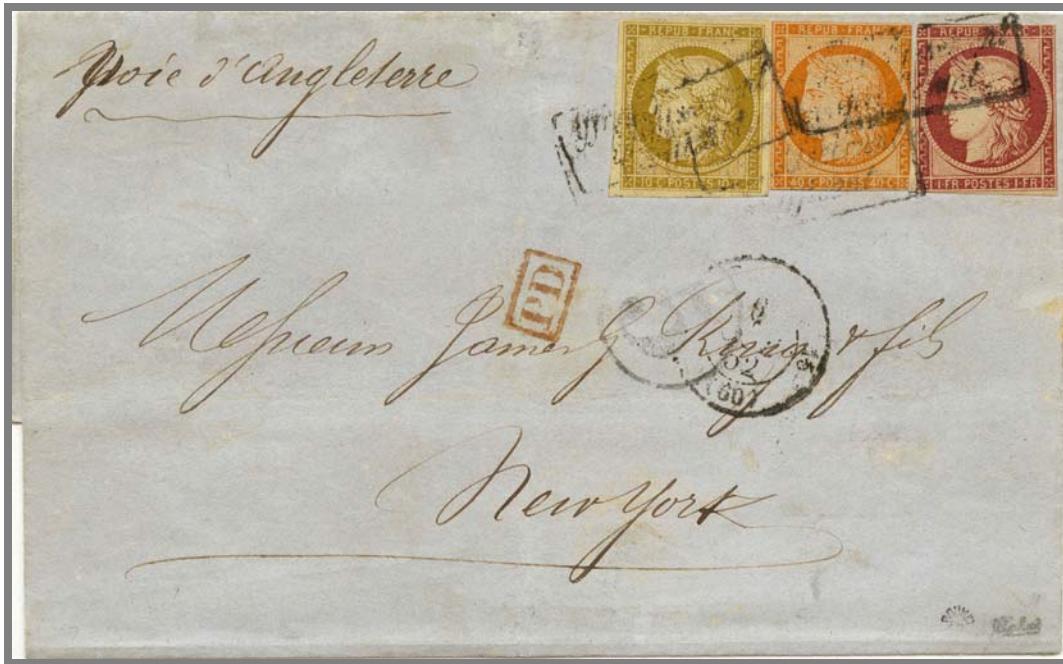 Voie d'Angleterre
REPUB·FRANC·
10·C·POSTES
REPUB·FRANC·
40·C·POSTES·40·C·
REPUB·FRANC·
1·FR·POSTES·1·FR·
PD
52
(60)
Messieurs James G King & fils
New York